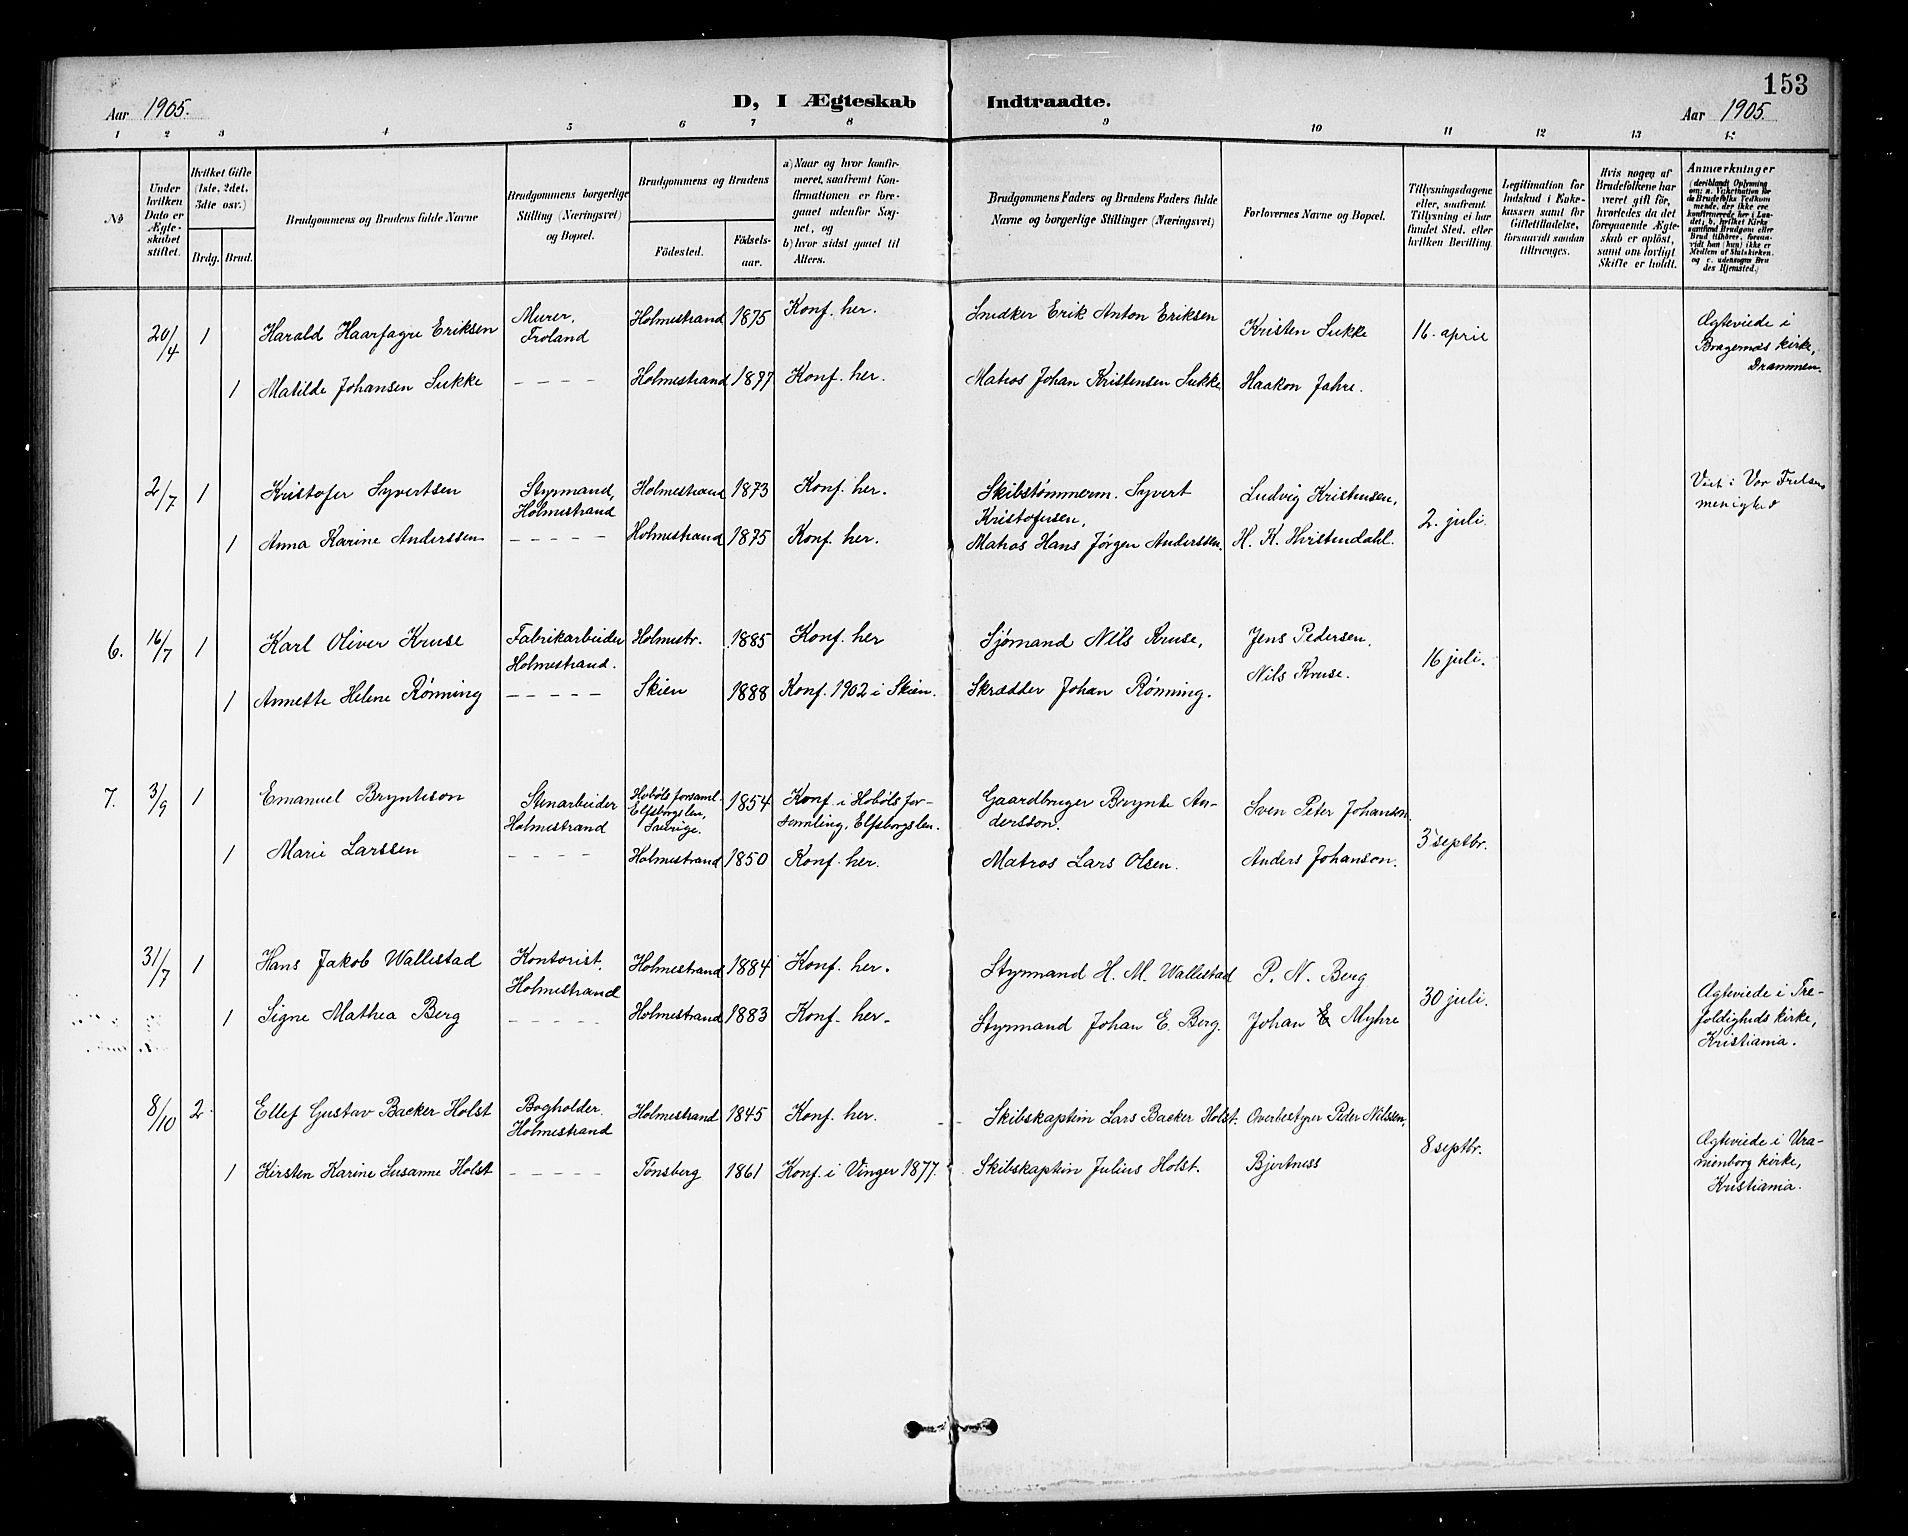 153
Aar 1905.
D, I Ægteskab
Indtraadte.
Aar 1905.
1 2 3 4 5 6 7 8 9 10 11 12 13
No
Under hvilken Dato er Ægteskabet stiftet.
Hvilket Gifte (1ste, 2det, 3die osv.)
Brdg. Brud.
Brudgommens og Brudens fulde Navne
Brudgommens borgerlige Stilling (Næringsvei) og Bopæl.
Brudgommens og Brudens
Födested.
Födselsaar.
a) Naar og hvor konfirmeret, saafremt Konfirmationen er foregaaet udenfor Sognet, og
b) hvor sidst gaaet til Alters.
Brudgommens Faders og Brudens Faders fulde Navne og borgerlige Stillinger (Næringsvei)
Forlovernes Navne og Bopæl.
Tillysningsdagene eller, saafremt Tillysning ei har fundet Sted, efter hvilken Bevilling.
Legitimation for Indskud i Enkekassen samt for Giftetilladelse, forsaavidt saadan tiltrænges.
Hvis nogen af Brudefolkene har været gift før, hvorledes da det foregaaende Ægteskab er oplöst, samt om lovligt Skifte er holdt.
Anmærkninger
20/4 1 Harald Haarfagre Eriksen Murer, Froland Holmestrand 1875 Konf. her. Snedker Erik Anton Eriksen Kristen Sukke 16. april Ægteviede i Bragernæs kirke, Drammen.
1 Matilde Johansen Sukke – – – – Holmestrand 1877 Konf. her. Matros Johan Kristensen Sukke. Haakon Jahre.
2/7 1 Kristofer Syvertsen Styrmand, Holmestrand Holmestrand 1873 Konf. her. Skibstømmerm. Syvert Kristofersen, Ludvig Kristensen, 2. juli. Viet i Vor Frelsers menighed
1 Anna Karine Anderssen – – – – – Holmestrand 1875 Konf. her. Matros Hans Jørgen Anderssen. H. K. Hvistendahl.
6. 16/7 1 Karl Oliver Kruse Fabrikarbeider Holmestrand. Holmestr. 1885 Konf. her Sjømand Nils Kruse, Jens Pedersen. 16 juli.
1 Annette Helene Rønning – – – – – Skien 1888 Konf. 1902 i Skien. Skrædder Johan Rønning. Nils Kruse.
7. 3/9 1 Emanuel Bryntesson Stenarbeider Holmestrand Hobøls forsaml. Elfsborgslen, Sverige. 1854 Konf. i Hobøls forsamling, Elfsborgslen. Gaardbruger Brynte Andersson. Sven Peter Johanson. 3 septbr.
1 Marie Larssen – – – – Holmestrand 1850 Konf. her. Matros Lars Olsen. Anders Johanson.
31/7 1 Hans Jakob Wallestad Kontorist. Holmestrand Holmestrand 1884 Konf. her. Styrmand H. M. Wallestad P. N. Berg 30 juli. Ægteviede i Trefoldigheds kirke, Kristiania.
1 Signe Mathea Berg – – – – – Holmestrand 1883 Konf. her. Styrmand Johan E. Berg. Johan Myhre
8/10 2. Ellef Gustav Backer Holst Bogholder. Holmestrand Holmestrand 1845 Konf. her. Skibskaptein Lars Backer Holst. Overbestyrer Peder Nilssen, 8 septbr. Ægteviede i Uranienborg kirke, Kristiania.
1 Kirsten Karine Susanne Holst – – – – – Tønsberg 1861 Konf. i Vinger 1877. Skibskaptein Julius Holst. Bjertness